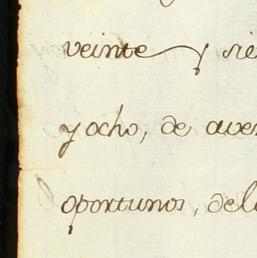 veinte y sie
y ocho, de aver
oportunos, del